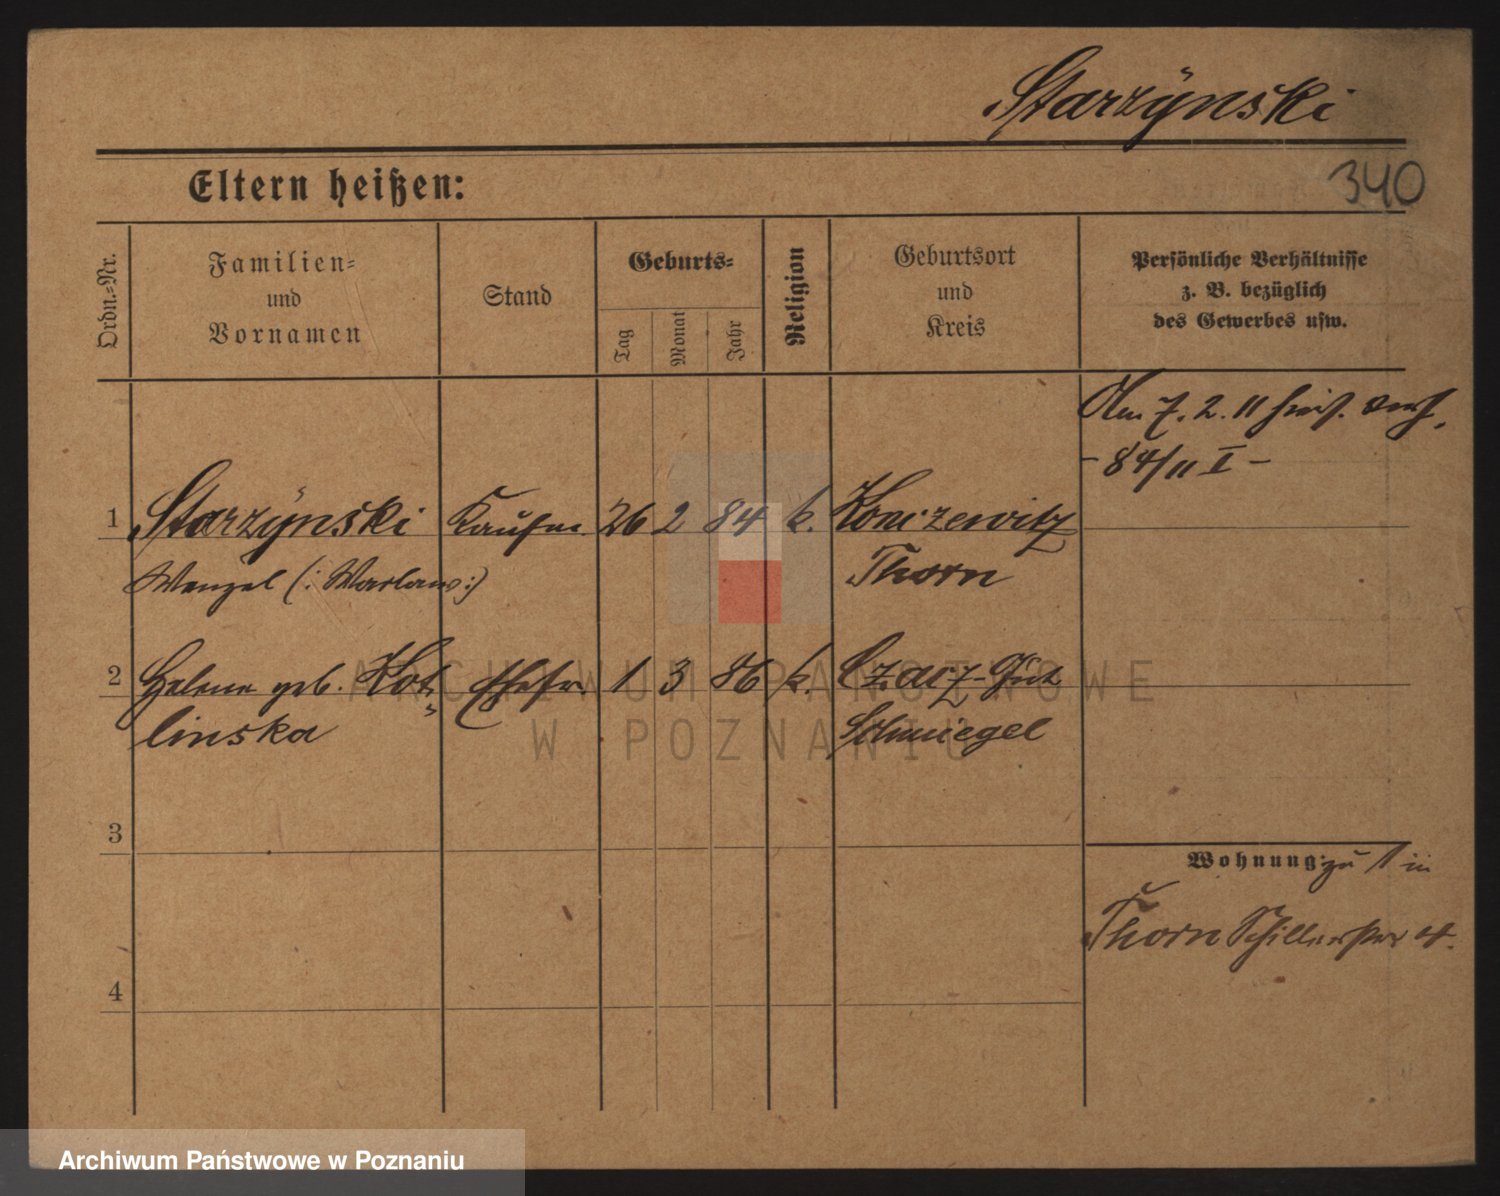 Starzÿnski
340
Eltern heißen:
Ordn.-Nr.
Familien-
und
Vornamen
Stand
Geburts-
Tag
Monat
Jahr
Religion
Geburtsort
und
Kreis
Persönliche Verhältnisse
z. B. bezüglich
des Gewerbes usw.
7. 2. 11
- 84/11 I -
1 Starzÿnski Kaufm. 26 2 84 k. Konczewitz
Wenzel (: Warlaw :) Thorn
2 Helene geb. Kot- Ehefr. 1 3 86 k. Czacz-Gut
linska Schmiegel
3
Wohnung: zu 1 in
Thorn Schillerstr 4.
4
ARCHIWUM PAŃSTWOWE
W POZNANIU
Archiwum Państwowe w Poznaniu